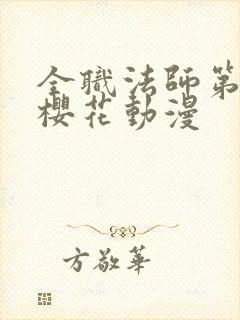 全職法師第
櫻花動漫
方敬華